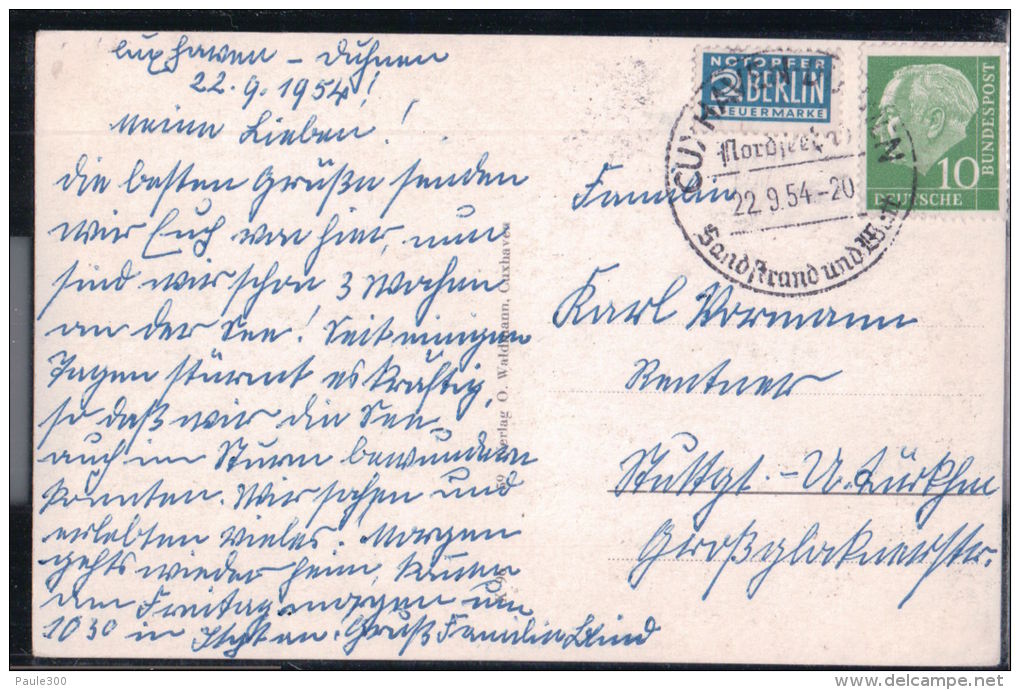 Cuxhaven – Duhnen
22.9.1954!
Meine Lieben!
Die besten Grüße senden
wir Euch von hier, nun
sind wir schon 3 Wochen
an der See! Seit einigen
Tagen stürmt es kräftig,
so daß wir die See
auch im Sturm bewundern
konnten. Wir sahen und
erlebten vieles. Morgen
gehts wieder heim, kommen
am Freitagmorgen um
10 30 in Stgt an. Gruß Familie
NOTOPFER
2 BERLIN
STEUERMARKE
DEUTSCHE
BUNDESPOST
10
CUXHAVEN
Nordseebad
22.9.54.-20
Sandstrand und Watt
Verlag O. Waldmann, Cuxhaven
Familie
Karl Vormann
Rentner
Stuttgt.-U.Türkhm
Großglocknerstr.
Paule300